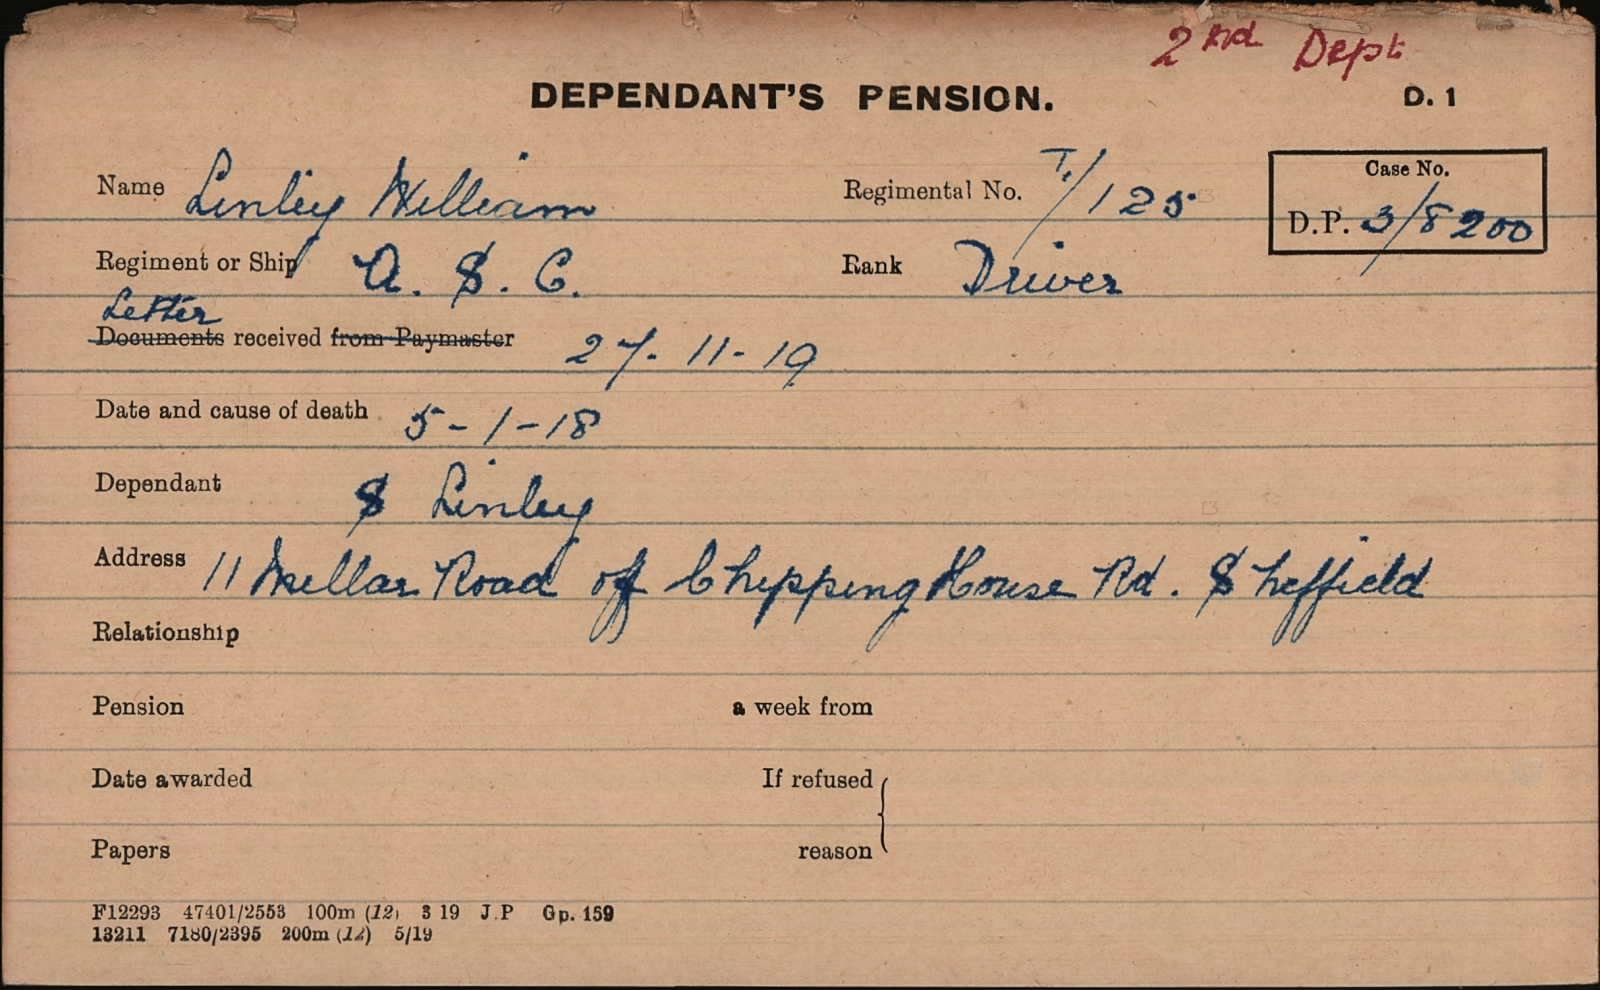 2nd Dept
DEPENDANT'S PENSION. D. 1
Name Linley William Regimental No. T/125 Case No.
D.P. 3/8200
Regiment or Ship A. S. C. Rank Driver
Letter
Documents received from Paymaster 27-11-19
Date and cause of death 5-1-18
Dependant S Linley
Address 11 Mellar Road off Chipping House Rd. Sheffield
Relationship
Pension a week from
Date awarded If refused
Papers reason
F12293 47401/2553 100m (12) 3 19 J.P Gp. 159
13211 7180/2395 200m (12) 5/19